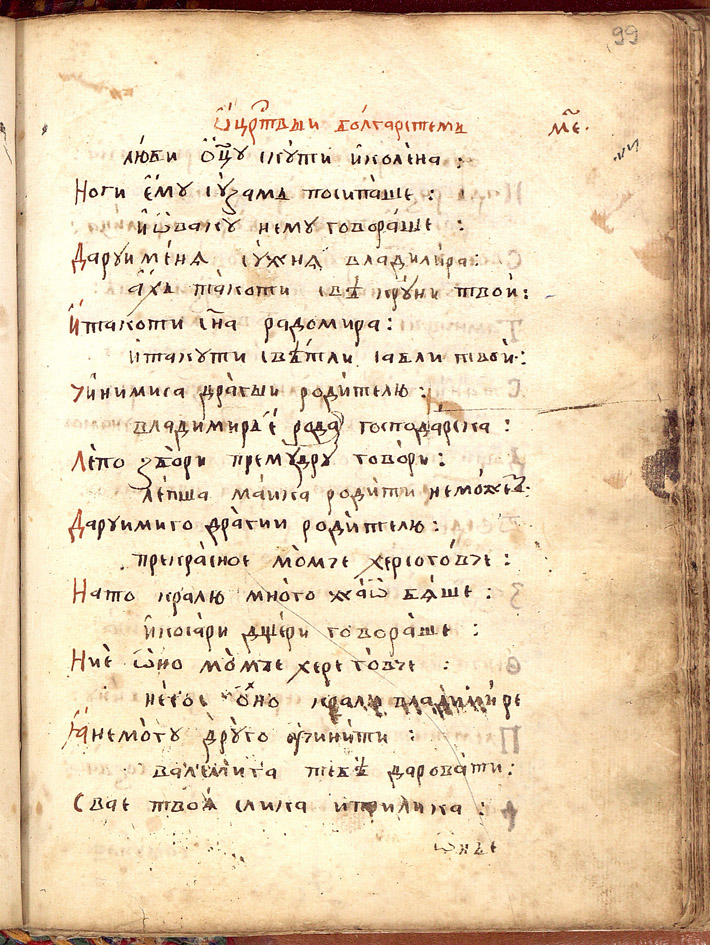 99
Ѿ црⷭ҇твыи болгарстемь м҃е.
люби ѻц҃у скути и колена :
Ноги ему сузамь посипаше :
и ѡваку нему говораше :
Даруи меня сужня владимира :
такоти свѣ круни твои :
И такоти с҃на радомира :
и такути свѣтли сабли твои :
чинимиса драгыи родителю :
владимирь е рода господарска :
Лепо збори премудру говори :
лепша маика родити неможеⷮ :
Даруимиго драгии родителю :
прекрасное момче херсеговче :
Нато кралю много жаѡ бяше :
и косари дщери говораше :
Ние ѡно момче херсеговче :
невое ѡно краль владимире
Я немогу друго учинити :
валемига тебѣ даровати :
Свае твоя слика и прилика :
ѡнъе